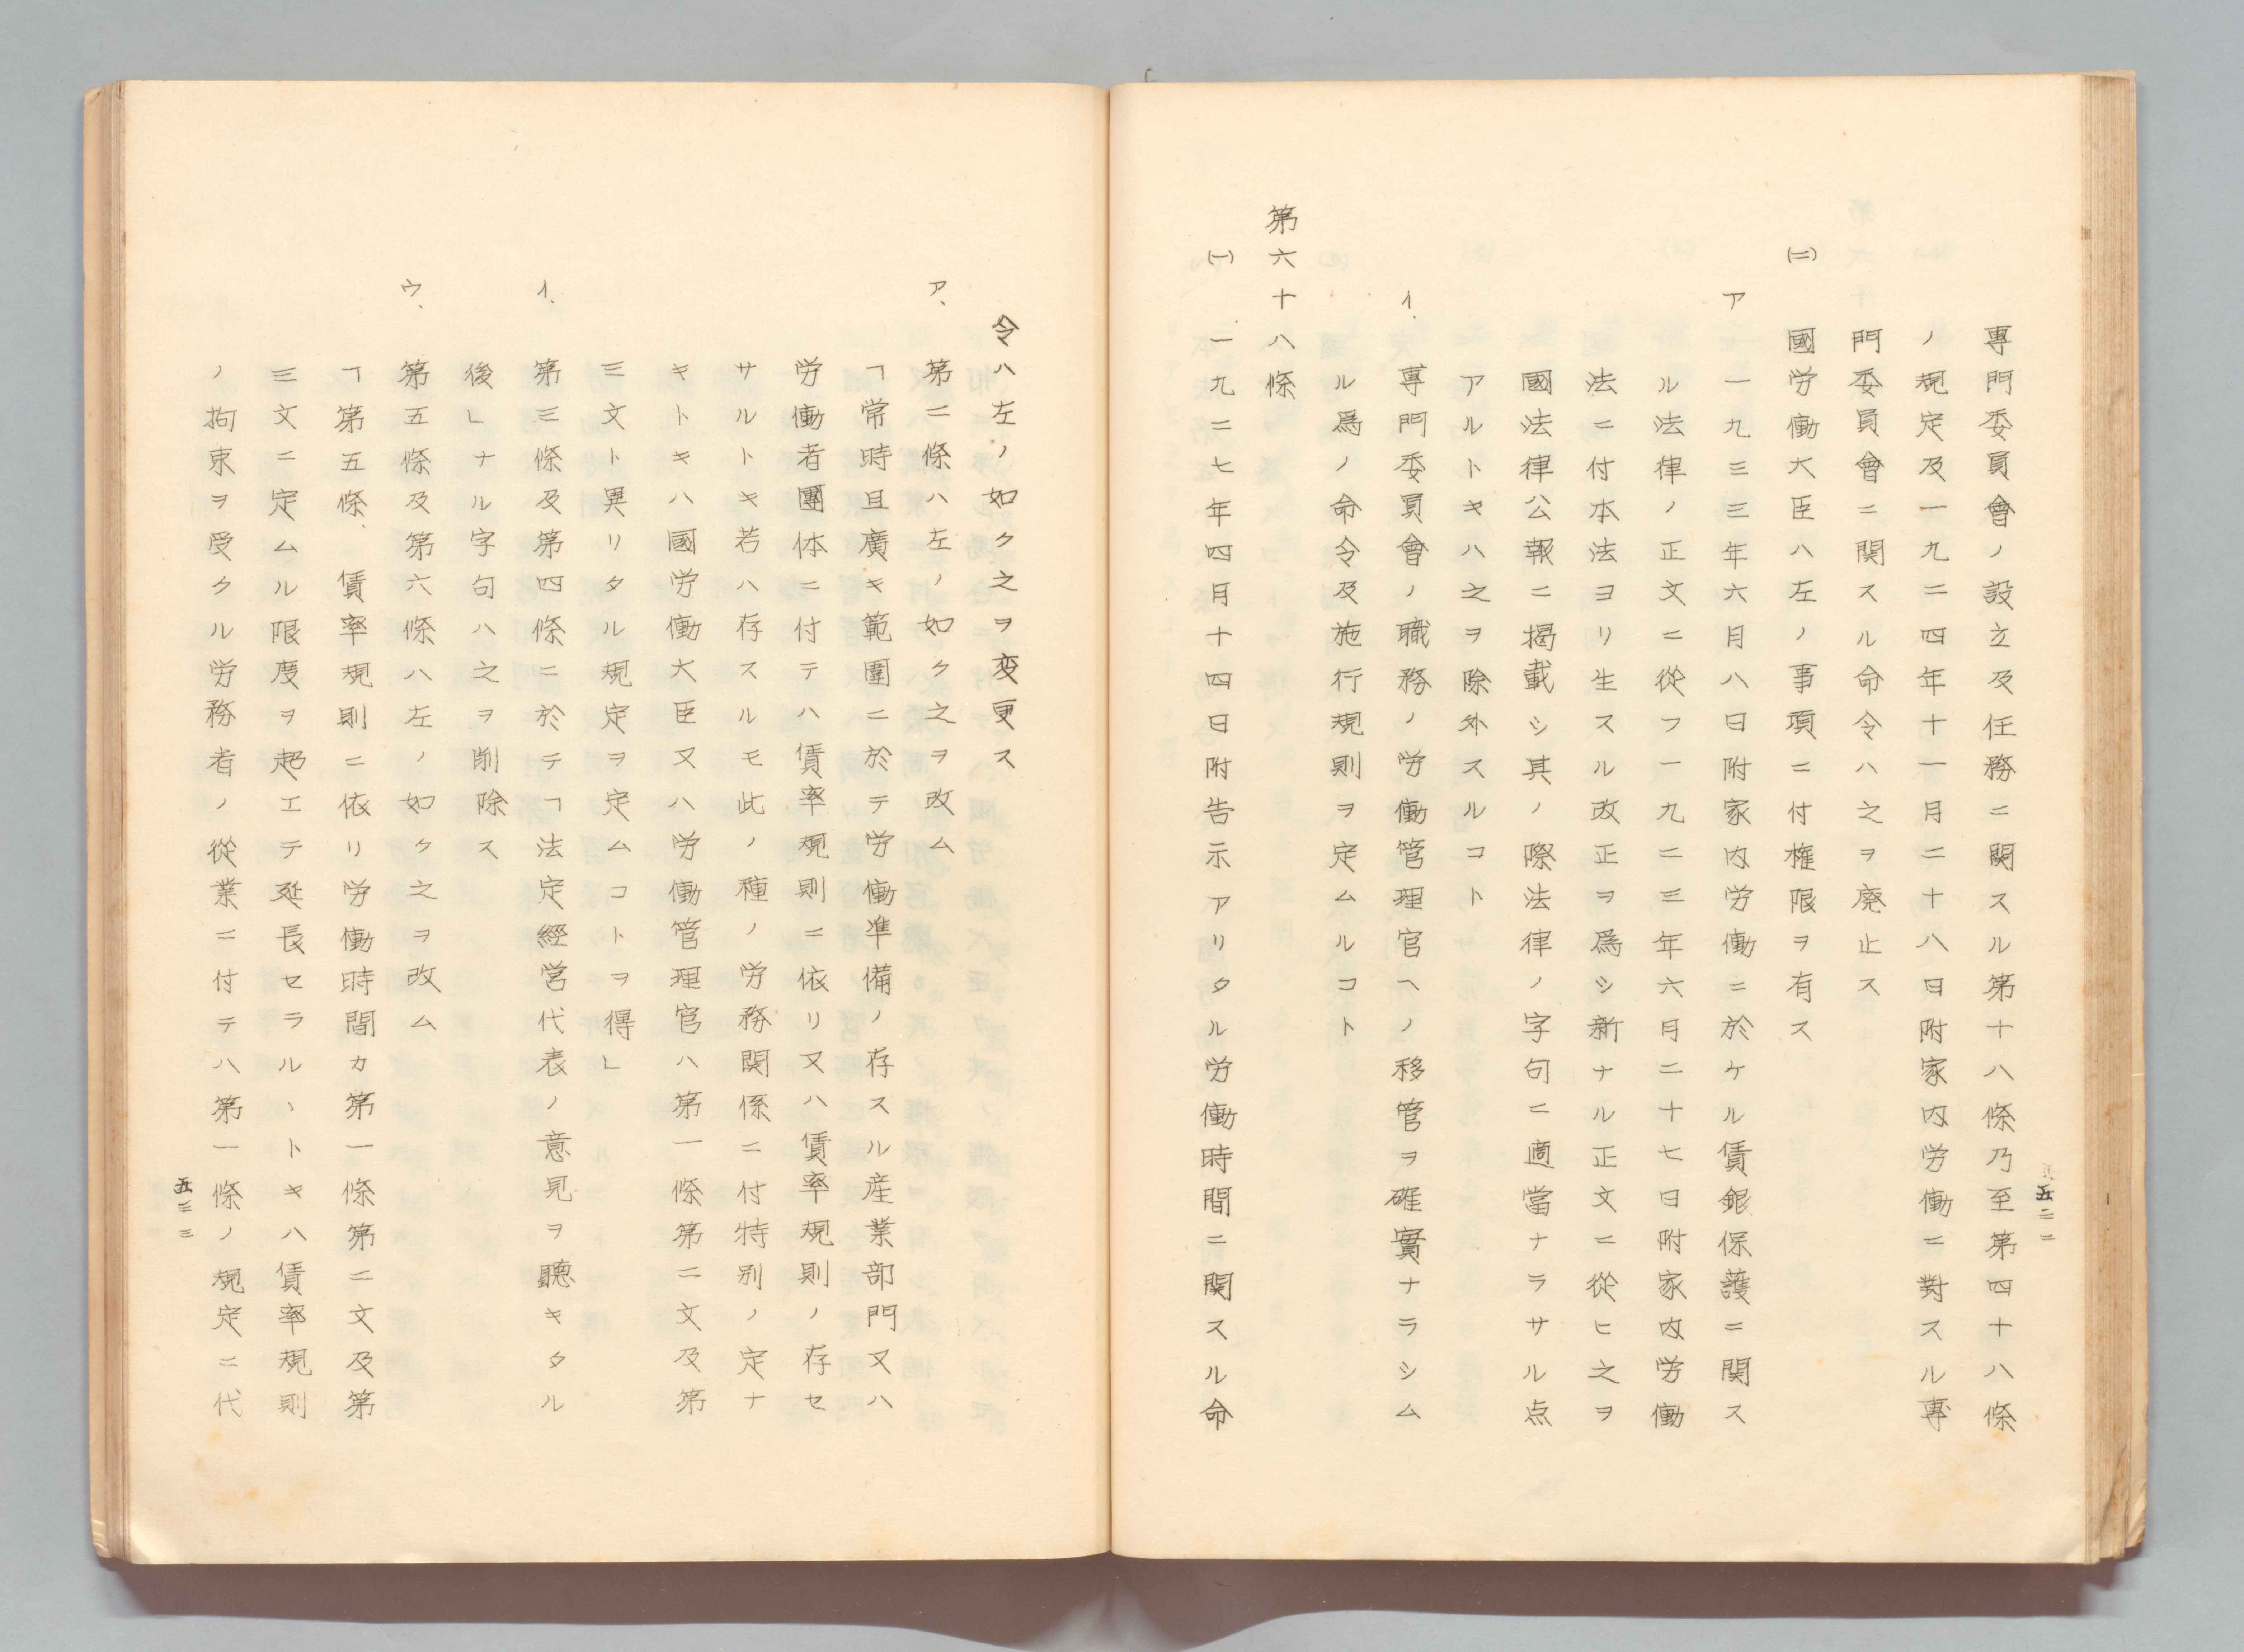 專門委員會ノ設立及任務ニ関スル第十八條乃至第四十八條
ノ規定及一九二四年十一月二十八日附家内労働ニ對スル專
門委員會ニ関スル命令ハ之ヲ廃止ス
(二) 國労働大臣ハ左ノ事項ニ付権限ヲ有ス
ア 一九三三年六月八日附家内労働ニ於ケル賃銀保護ニ関ス
ル法律ノ正文ニ從フ一九二三年六月二十七日附家内労働
法ニ付本法ヨリ生スル改正ヲ爲シ新ナル正文ニ從ヒ之ヲ
國法律公報ニ揭載シ其ノ際法律ノ字句ニ適當ナラサル点
アルトキハ之ヲ除外スルコト
イ. 專門委員會ノ職務ノ労働管理官ヘノ移管ヲ確實ナラシム
ル爲ノ命令及施行規則ヲ定ムルコト
第六十八條
(一) 一九二七年四月十四日附告示アリタル労働時間ニ関スル命
五二二
令ハ左ノ如ク之ヲ変更ス
ア、 第二條ハ左ノ如ク之ヲ改ム
「常時且廣キ範圍ニ於テ労働準備ノ存スル産業部門又ハ
労働者團体ニ付テハ賃率規則ニ依リ又ハ賃率規則ノ存セ
サルトキ若ハ存スルモ此ノ種ノ労務関係ニ付特別ノ定ナ
キトキハ國労働大臣又ハ労働管理官ハ第一條第二文及第
三文ト異リタル規定ヲ定ムコトヲ得」
イ、 第三條及第四條ニ於テ「法定經営代表ノ意見ヲ聽キタル
後」ナル字句ハ之ヲ削除ス
ウ、 第五條及第六條ハ左ノ如ク之ヲ改ム
「第五條、 賃率規則ニ依リ労働時間カ第一條第二文及第
三文ニ定ムル限度ヲ超エテ延長セラルヽトキハ賃率規則
ノ拘束ヲ受クル労務者ノ從業ニ付テハ第一條ノ規定ニ代
五二三